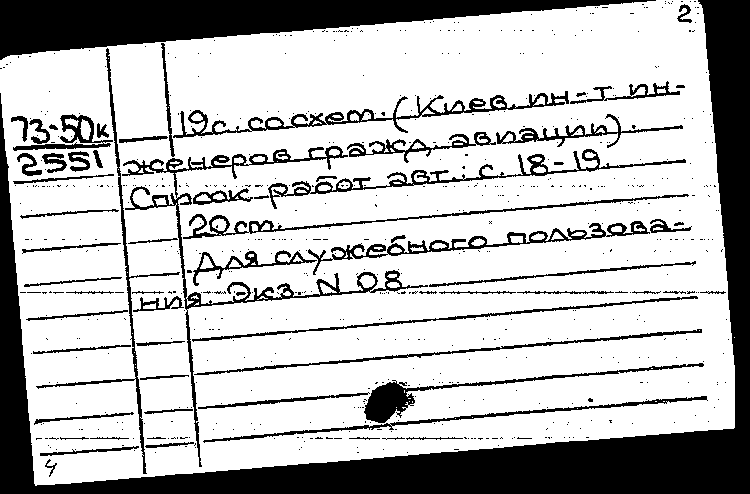 2
73-50к
2551
19с. со схем. (Киев. ин-т ин-
женеров гражд. авиации).
Список работ авт.: с. 18-19.
20см.
Для служебного пользова-
ния. Экз. N 08
4